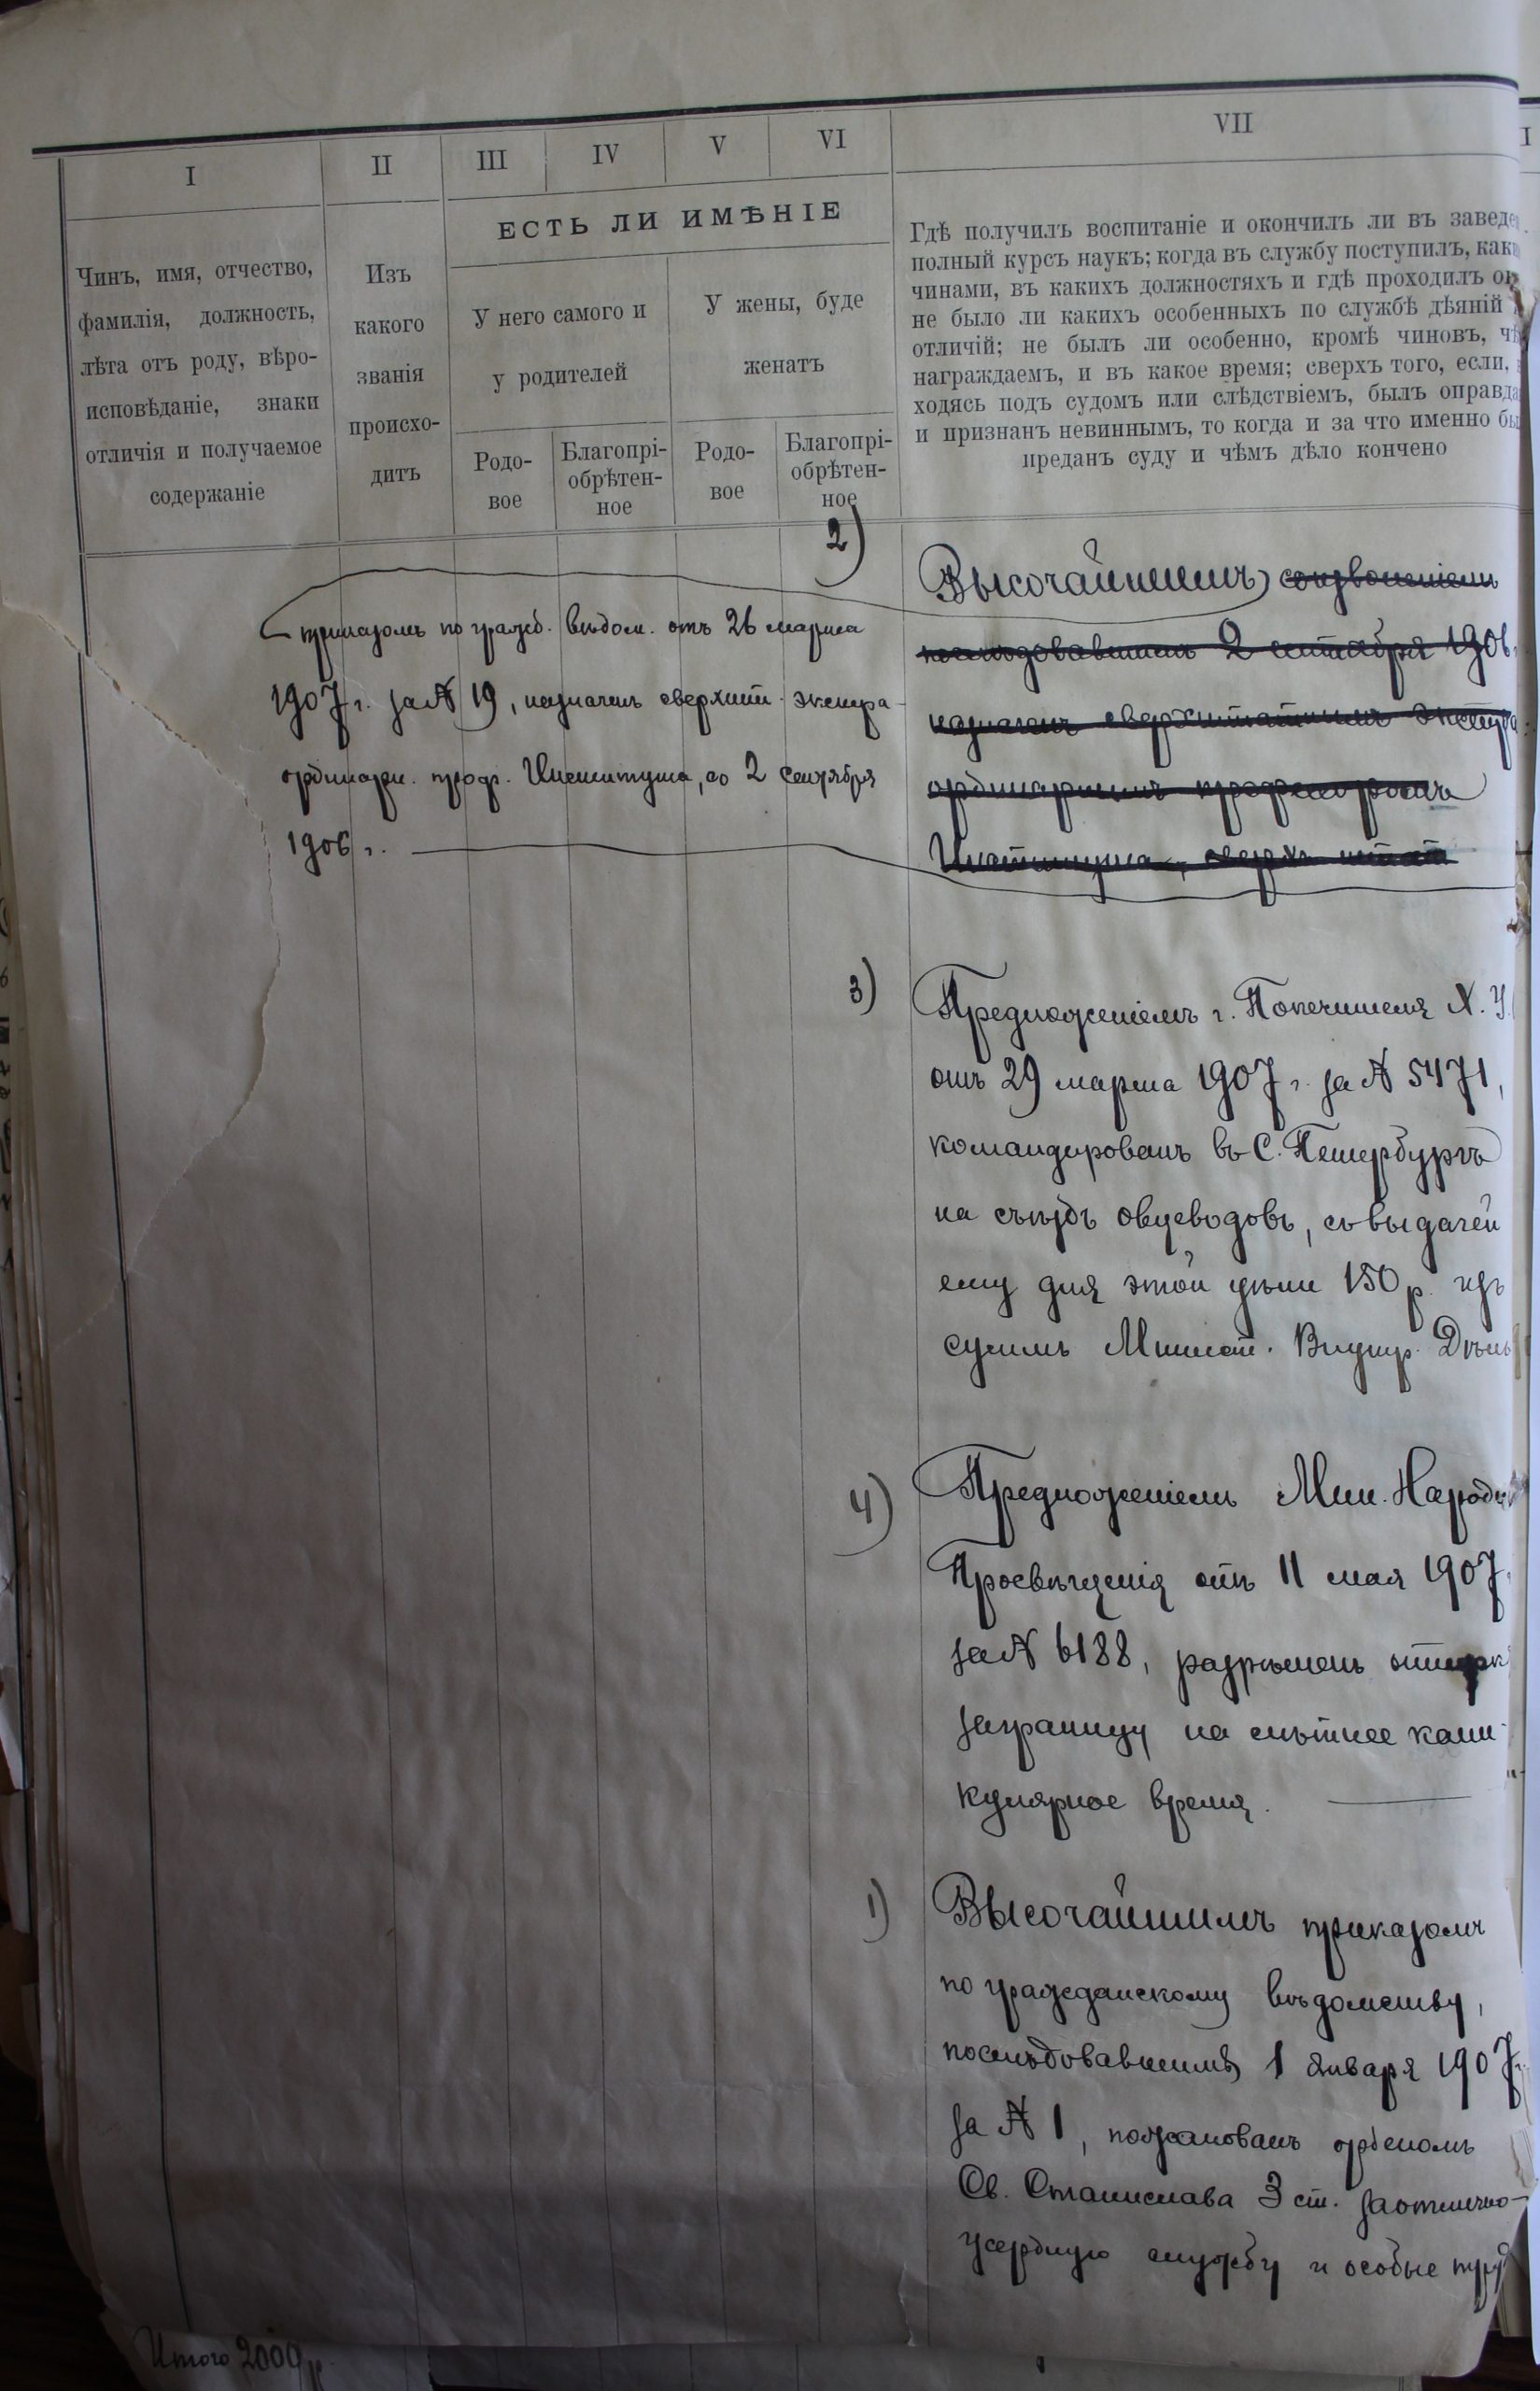 I II III IV V VI VII
ЕСТЬ ЛИ ИМѢНІЕ
Чинъ, имя, отчество,
фамилія, должность,
лѣта отъ роду, вѣро-
исповѣданіе, знаки
отличія и получаемое
содержаніе
Изъ
какого
званія
происхо-
дитъ
У него самого и
у родителей
У жены, буде
женатъ
Родо-
вое
Благопрі-
обрѣтен-
ное
Родо-
вое
Благопрі-
обрѣтен-
ное
Гдѣ получилъ воспитаніе и окончилъ ли въ заведе
полный курсъ наукъ; когда въ службу поступилъ, как
чинами, въ какихъ должностяхъ и гдѣ проходилъ он
не было ли какихъ особенныхъ по службѣ дѣяній
отличій; не былъ ли особенно, кромѣ чиновъ, чѣ
награждаемъ, и въ какое время; сверхъ того, если,
ходясь подъ судомъ или слѣдствіемъ, былъ оправда
и признанъ невиннымъ, то когда и за что именно бы
преданъ суду и чѣмъ дѣло кончено
2) Высочайшимъ соизволеніемъ
послѣдовавшимъ 2 сентября 1906
назначенъ сверхштатнымъ экстра
ординарнымъ профессоромъ
Института, сверхъ штат
приказомъ по гражд. вѣдом. отъ 26 марта
1907 г. за № 19, назначенъ сверхшт. экстра-
ординарн. проф. Института, со 2 сентября
1906 г.
3) Предложеніемъ г. Попечителя Х. У.
отъ 29 марта 1907 г. за № 5471,
командированъ въ С. Петербургъ
на съѣздъ овцеводовъ, съ выдачей
ему для этой цѣли 150 р. изъ
суммъ Минист. Внутр. Дѣлъ
4) Предложеніемъ Мин. Народн
Просвѣщенія отъ 11 мая 1907
за № 6188, разрѣшенъ отпуск
заграницу на лѣтнее кани-
кулярное время.
1) Высочайшимъ приказомъ
по гражданскому вѣдомству,
послѣдовавшимъ 1 января 1907 г.
за № 1, пожалованъ орденомъ
Св. Станислава 3 ст. за отлично-
усердную службу и особые труд
Итого 2000 р.